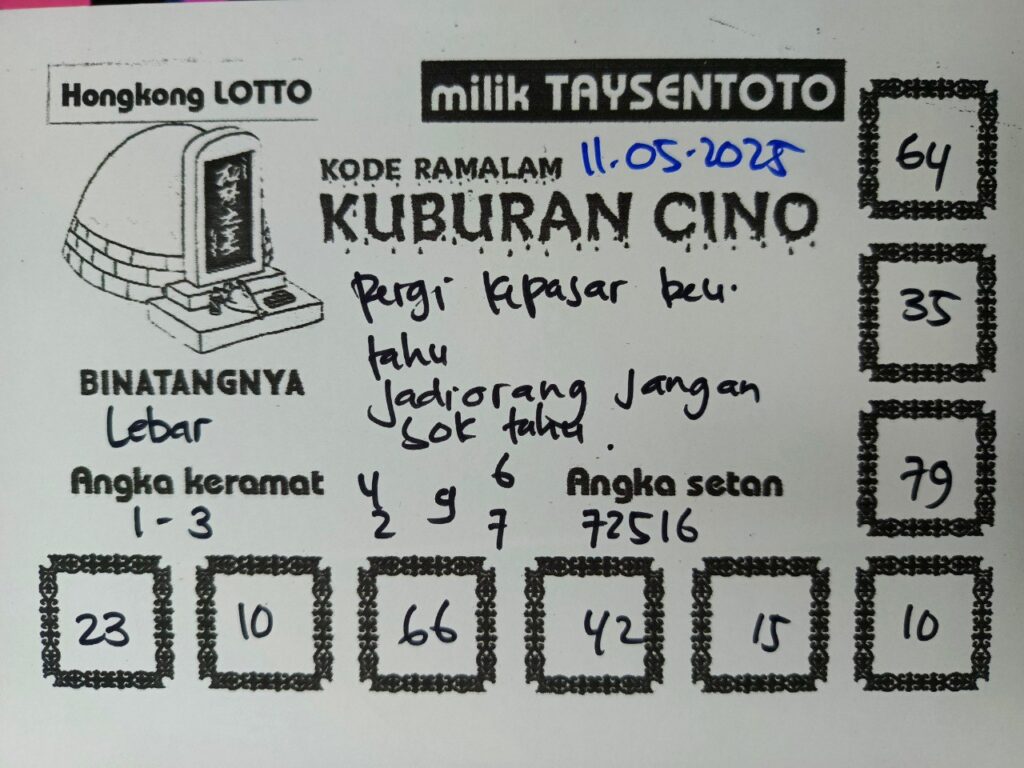 Hongkong LOTTO
milik TAYSENTOTO
KODE RAMALAM 11.05.2025
KUBURAN CINO
Pergi kepasar beli
tahu
Jadiorang jangan
sok tahu.
BINATANGNYA
Lebar
Angka keramat
1-3
4 6
9
2 7
Angka setan
72516
64
35
79
23 10 66 42 15 10